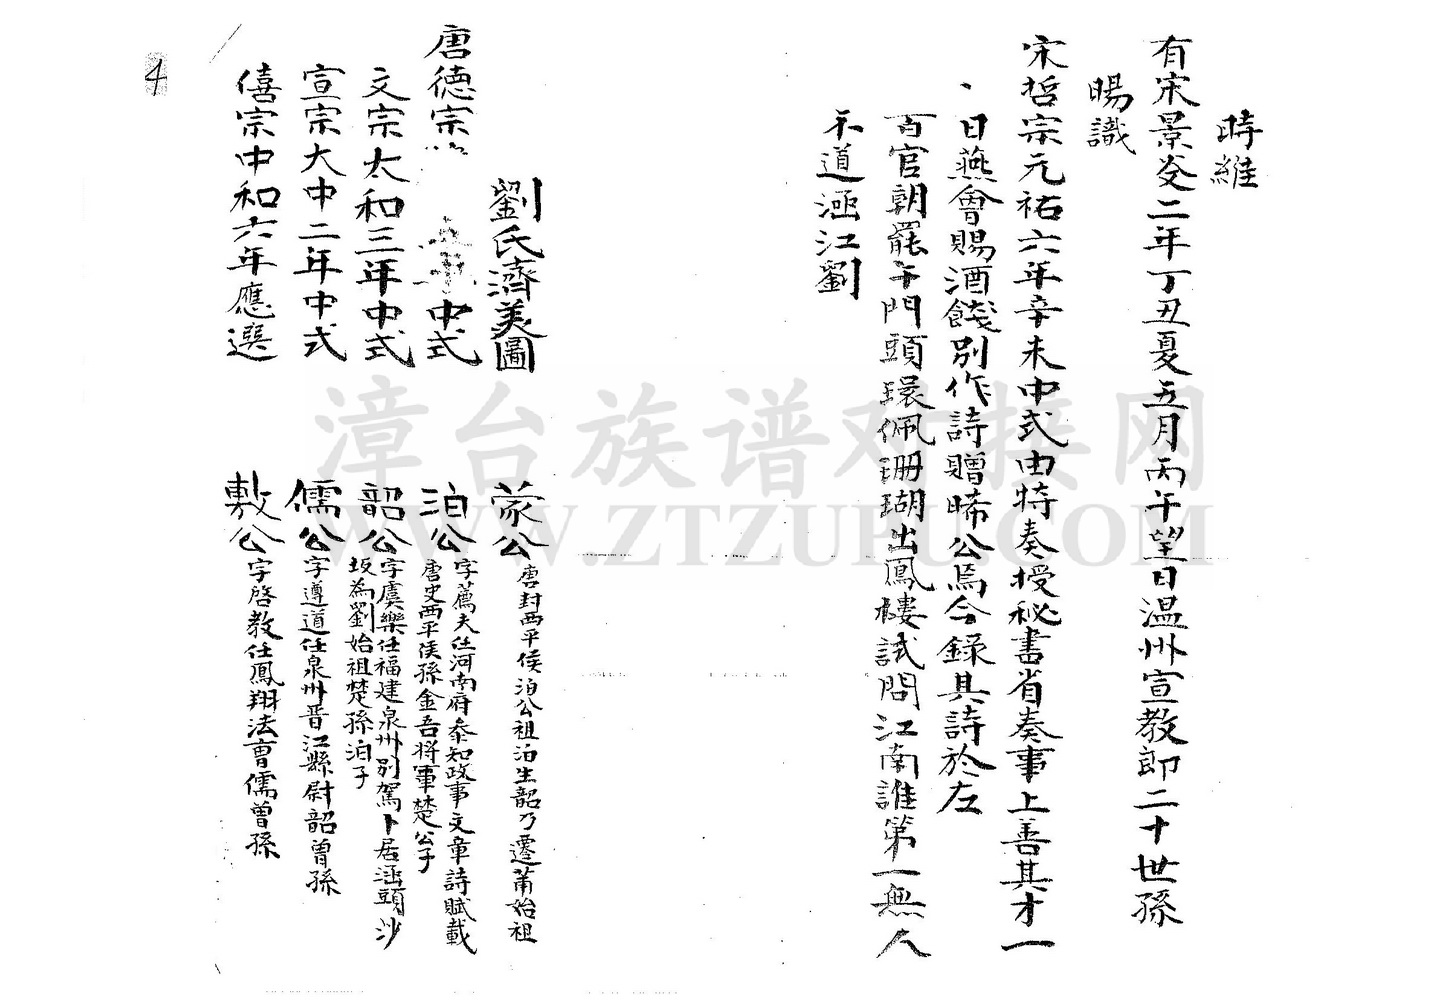 時維
有宋景炎二年丁丑夏五月丙午望日温州宣教郎二十世孫
暘識
宋哲宗元祐六年辛未中式由特奏授秘書省奏事上善其才一
日燕會賜酒餞別作詩贈晞公焉今錄其詩於左
百官朝罷午門頭環佩珊瑚出鳳樓試問江南誰第一無人
不道涵江劉
劉氏濟美圖
蒙公 唐封西平侯泊公祖泊生韶乃遷莆始祖
唐德宗 年中式
泊公 字薦夫任河南府泰知政事文章詩賦載
唐史西平侯孫金吾將軍楚公子
文宗太和三年中式
韶公 字虞樂任福建泉州別駕卜居涵頭沙
坂為劉始祖楚孫泊子
宣宗大中二年中式
儒公 字遵道任泉州晋江縣尉韶曾孫
僖宗中和六年應選
敷公 字啓教任鳳翔法曹儒曾孫
4
漳台族谱对接网
WWW.ZTZUPU.COM